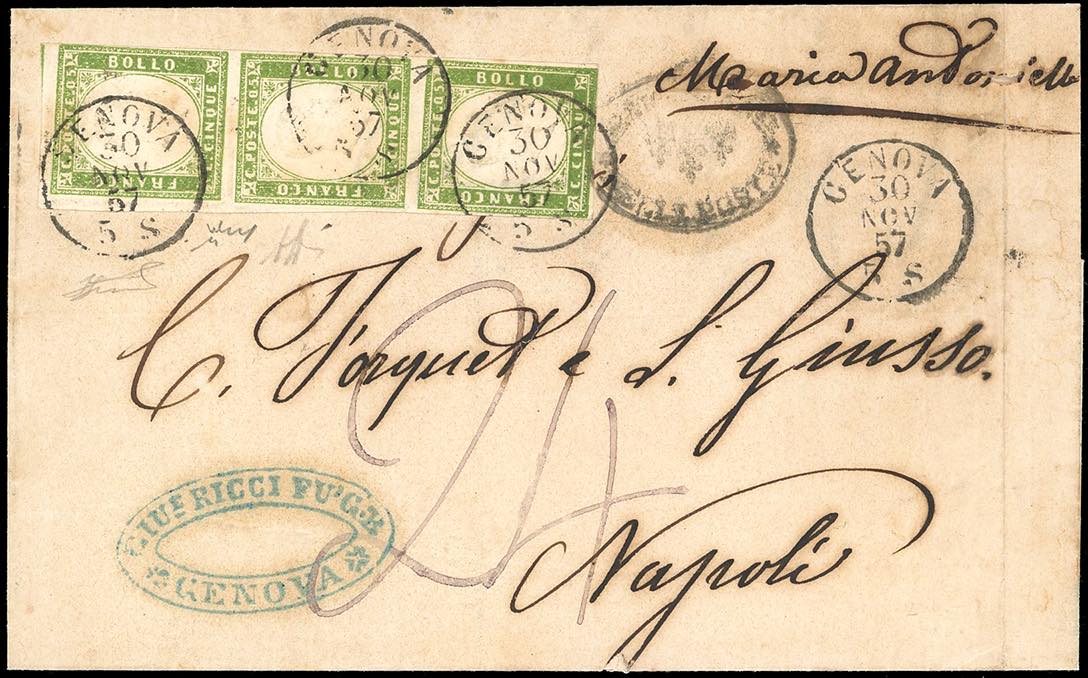 BOLLO
C. POSTE. 05
C. CINQUE
FRANCO
BOLLO
C. POSTE. 05
C. CINQUE
FRANCO
BOLLO
C. POSTE. 05
C. CINQUE
FRANCO
GENOVA
30
NOV
57
5 S
GENOVA
30
NOV
57
GENOVA
30
NOV
57
5 S
Maria
GENOVA
30
NOV
57
5 S
C. Forquet e L. Giusso.
24
Napoli
GIUE RICCI FU G.B
GENOVA